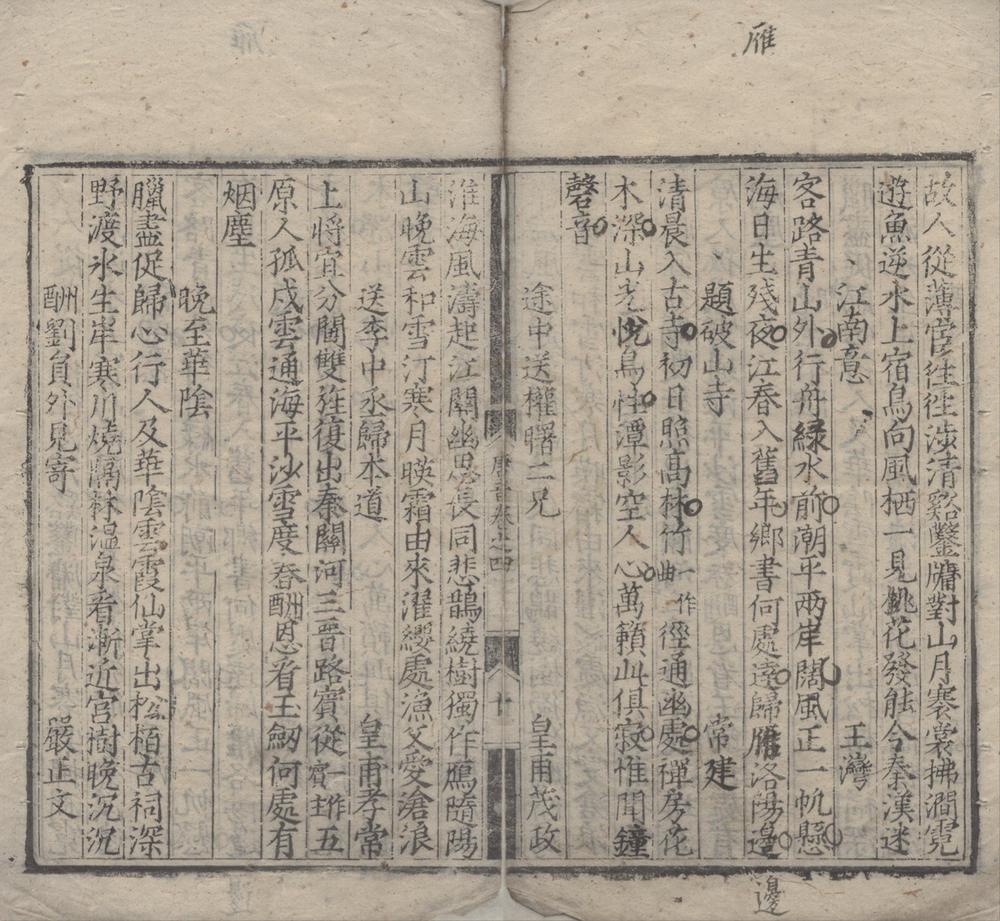 雁
故人從薄宦往往涉清谿鑿牖對山月褰裳拂澗霓
遊魚逆水上宿鳥向風栖一見桃花發能令秦漢迷
江南意 王灣
客路青山外行舟綠水前潮平兩岸闊風正一帆懸
海日生殘夜江春入舊年鄉書何處達歸鴈洛陽邊
題破山寺 常建
清晨入古寺初日照高林竹一作曲徑通幽處禪房花
木深山光悅鳥性潭影空人心萬籟此俱寂惟聞鐘
磬音
途中送權曙二兄 皇甫茂政
唐音卷之四 十
淮海風濤起江關幽思長同悲鵲繞樹獨作鴈隨陽
山晚雲和雪汀寒月映霜由來濯纓處漁父愛滄浪
送李中丞歸本道 皇甫孝常
上將宜分閫雙旌復出秦關河三晉路賓從一作五
原人孤戍雲通海平沙雪度春酬恩看玉劒何處有
烟塵
晚至華陰
臘盡促歸心行人及華陰雲霞仙掌出松栢古祠深
野渡冰生岸寒川燒隔林溫泉看漸近宮樹晚沉沉
酬劉員外見寄 嚴正文
邊